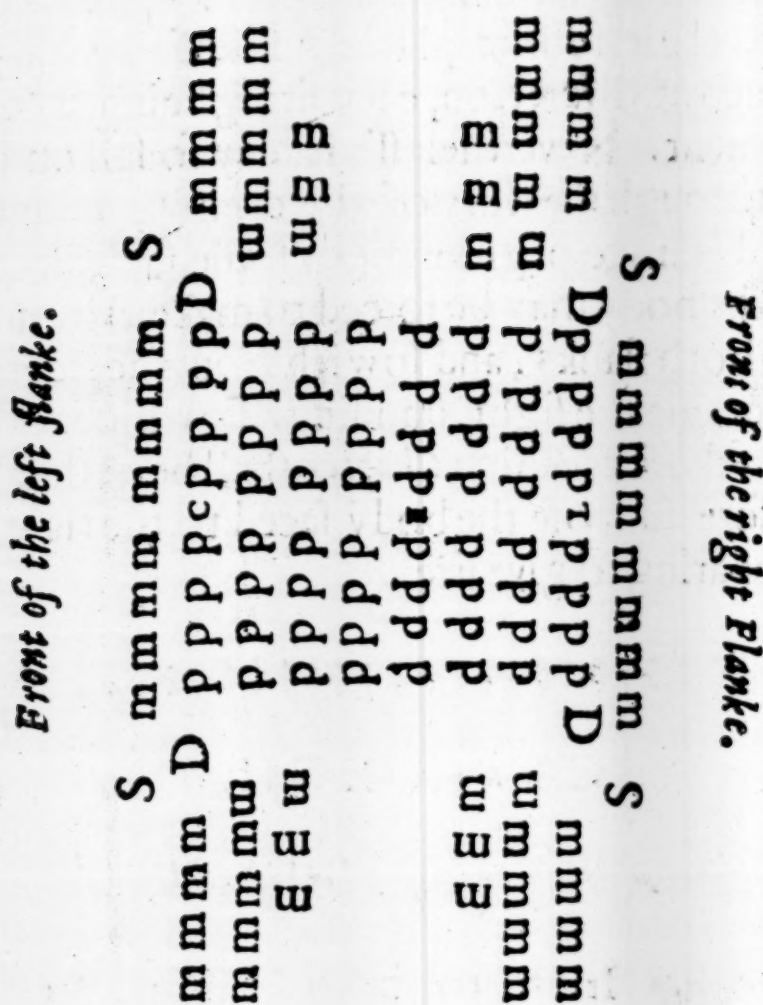 Front of the left flanke.
S m m m m m m m m S
m m m m D p p p p c p p p p D m m m m
m m m m m p p p p p p p p m m m m m
m m m p p p p p p p p m m m
p p p p p p p p
p p p p p p p p
m m m p p p p p p p p m m m
m m m m m p p p p p p p p m m m m m
m m m m D p p p p p p p p D m m m m
S m m m m m m m m S
Front of the right Flanke.